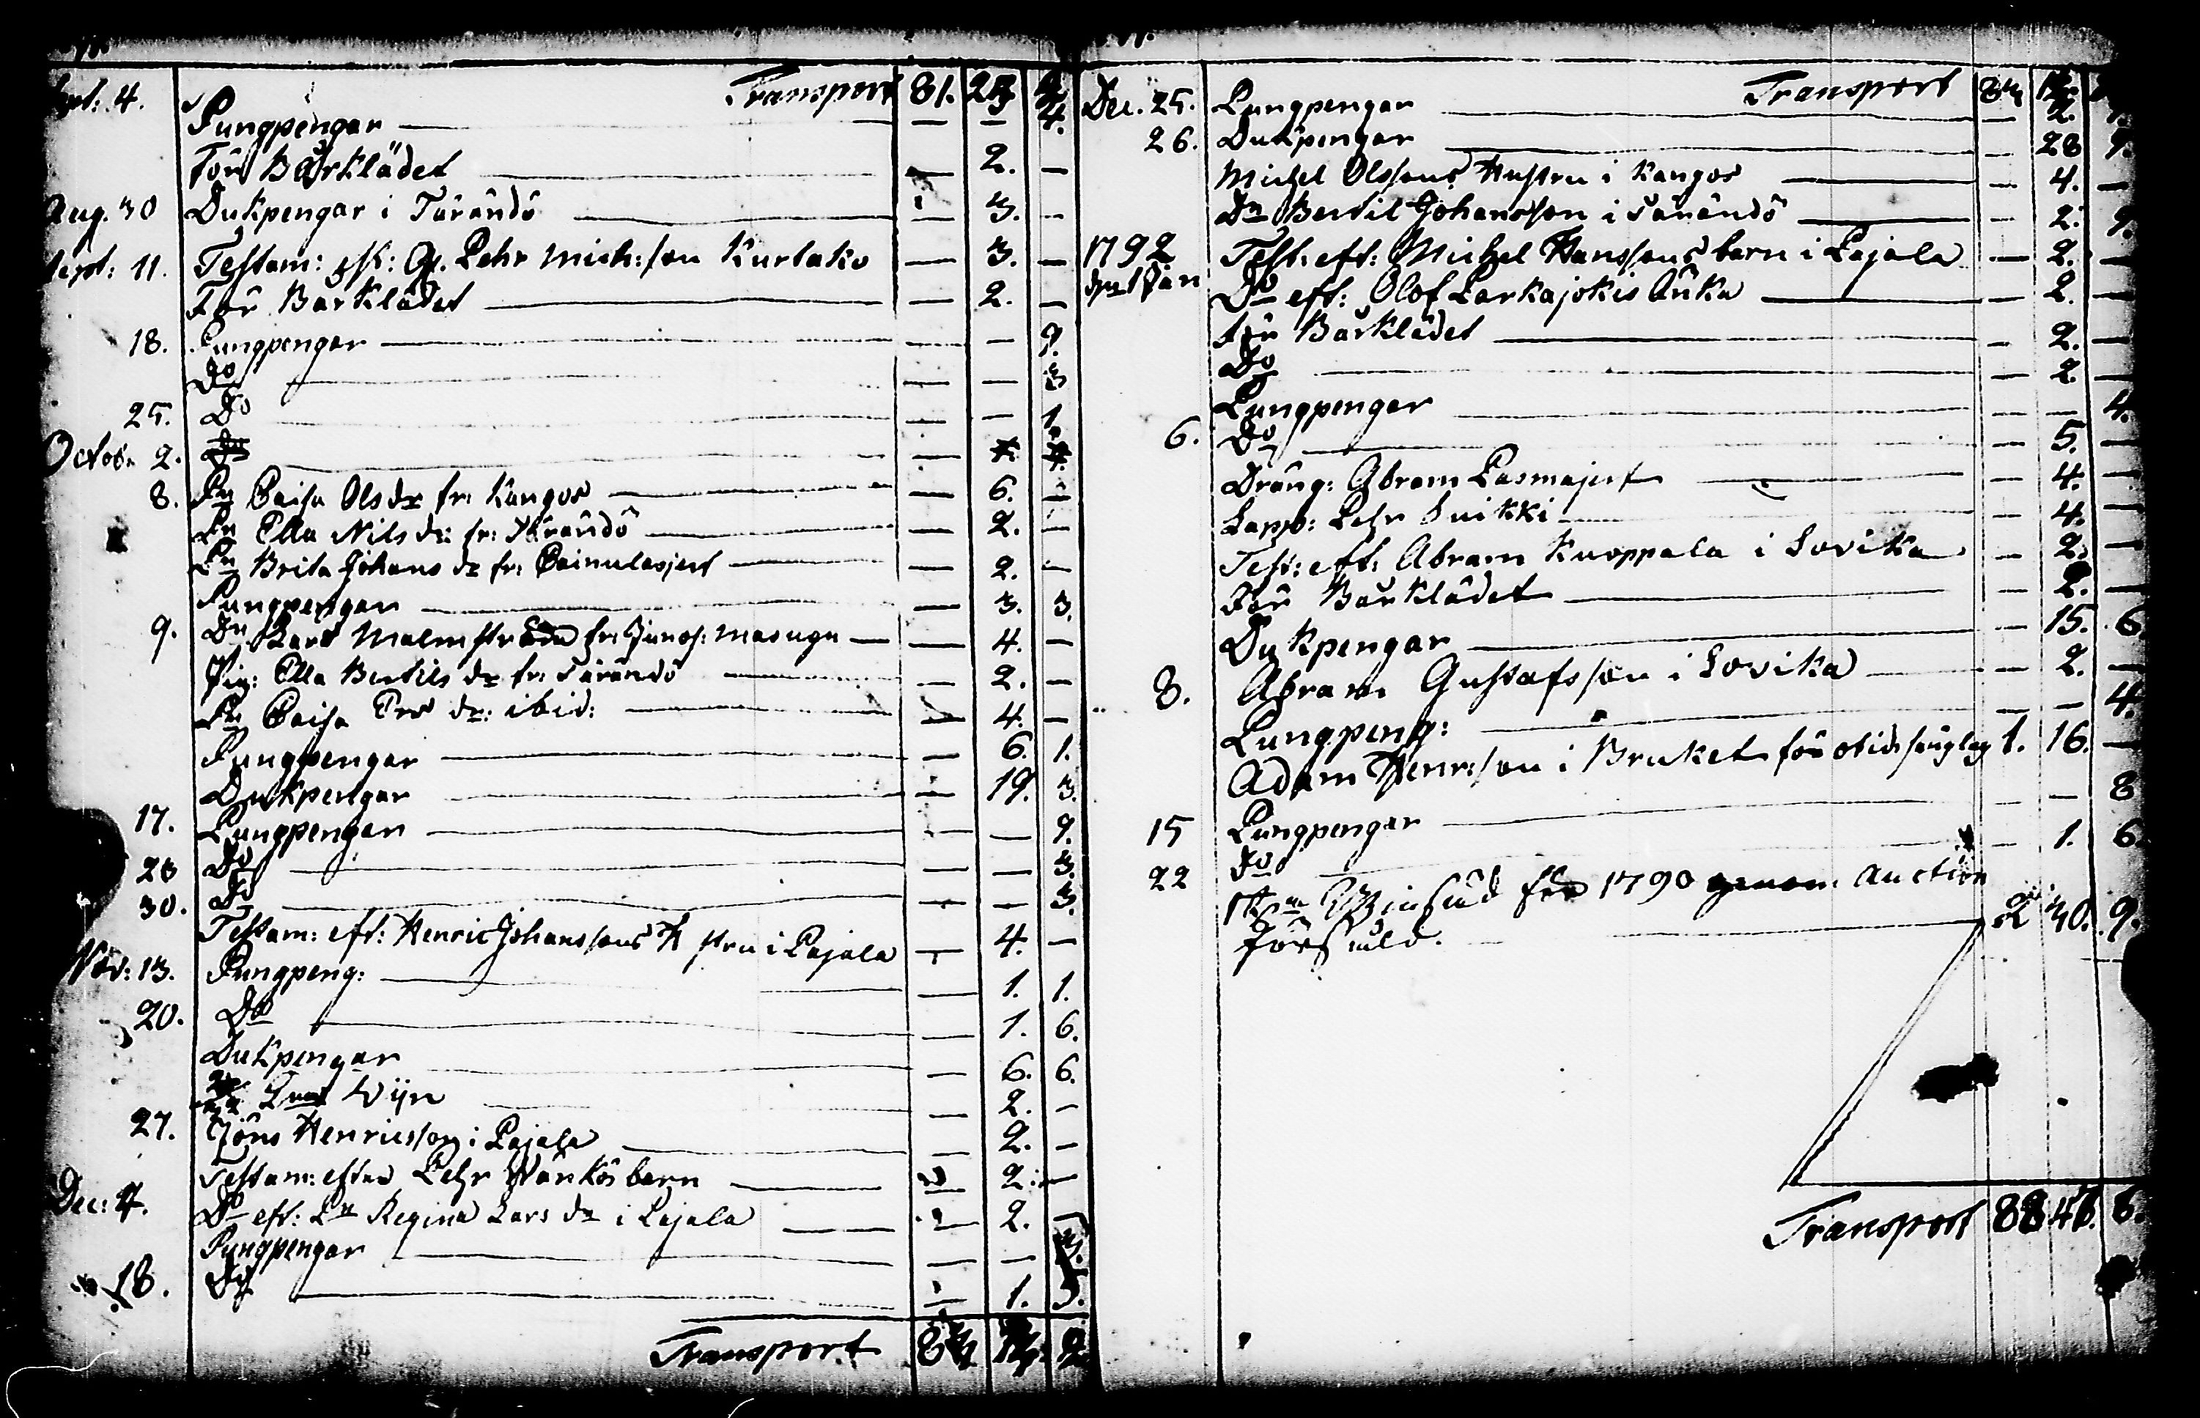 Sept: 4. Transport 81.
Pungpengar — — 4.
För Bårklädet — 2. —
Aug. 30 Dukpengar i Tärändö — 3. —
Sept: 11. Testam: Pehr Mich:son Kurtako — 3. —
För Bårklädet — 2. —
18. Pungpengar — — 9.
Do — — 3
25. Do — — 1.
Octob. 2. Do
8. Pn Caisa Olsdr fr: Kangos — 6. —
Pn Ella Nilsdr: fr: Tärändö — 2. —
Pn Brita Johansdr fr: Cainulasjerf — 2. —
Pungpengar — 3. 3.
9. Dn Lars Malmström fr: Junos: masugn — 4. —
Pig: Ella Bertilsdr fr: Tärändö — 2. —
Pn Caisa Ersdr: ibid: — 4. —
Pungpengar — 6. 1.
Dukpengar — 19. 3.
17. Pungpengar — — 9.
23 Do — — 3.
30. Do — — 3.
Testam: eft: Henric Johanssons Hstru i Pajala — 4. —
Nov: 13. Pungpeng: — 1. 1.
20. Do — 1. 6.
Dukpengar — 6. 6.
Wijn — 2. —
27. Jöns Henricsson i Pajala — 2. —
Testam: efter Pehr Wänkös barn — 2. —
Dec: 4. Do eft: Pn Regina Larsdr i Pajala — 2. —
Pungpengar — — 3.
18. Do — 1. 3.
Transport
Dec. 25. Transport
Pungpengar — 2.
26. Dukpengar — 28 9.
Michel Olssons Hustru i Kangos — 4. —
Dn Bertil Johansson i Tärändö — 2. 9.
1792 Test: eft: Michel Hanssons barn i Pajala — 2. —
den 1 Jan Do eft: Olof Parkajokis Änka — 2. —
För Bårklädet — 2. —
Do — 2. —
Pungpengar — — 4.
6. Do — 5. —
Dräng: Abram Pasmajerf — 4. —
Lapp: Pehr Snikki — 4. —
Test: eft: Abram Kuoppala i Lovika — 2. —
För Bårklädet — 2. —
Dukpengar — 15. 6
8. Abram Gustafsson i Lovika — 2. —
Pungpeng: — — 4.
Adam Henr:son i Bruket för otid: sänglag 1. 16. —
15 Pungpengar — — 8
22 Do — 1. 6.
för 1790 genom auction
försuld. 2 40. 9.
Transport 88 6.